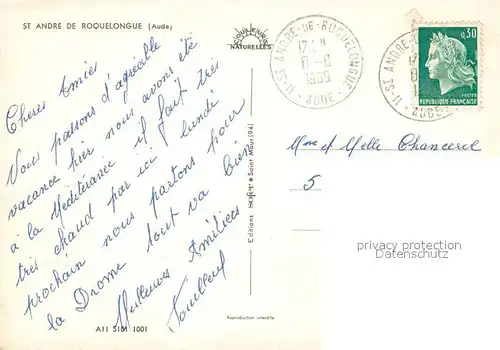 ST ANDRE DE ROQUELONGUE (Aude)
Cheres Amies
Vous passons d'agreable
vacance hier nous avons été
à la Mediteranée il fait très
très chaud par ici lundi
prochain nous partons pour
la Drome tout va bien
Meilleures Amitiées
COULEURS
NATURELLES
Editions
Saint Maur (94)
A11 1001
Reproduction interdite
11-ST ANDRE-DE-ROQUELONGUE
17 H
1969
AUDE
11-ST ANDRE
AUDE
0,30
POSTES
REPUBLIQUE FRANÇAISE
Mme et Melle Chancerel
5
privacy protection
Datenschutz